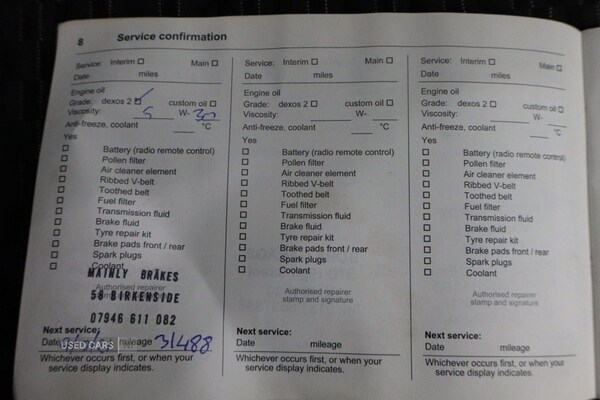 8 Service confirmation
Service: Interim Main
Date miles
Engine oil
Grade: dexos 2 custom oil
Viscosity: 5 W- 30
Anti-freeze, coolant °C
Yes
Battery (radio remote control)
Pollen filter
Air cleaner element
Ribbed V-belt
Toothed belt
Fuel filter
Transmission fluid
Brake fluid
Tyre repair kit
Brake pads front / rear
Spark plugs
Coolant
MAINLY BRAKES
Authorised repairer
58 BIRKENSIDE
07946 611 082
Next service:
Date mileage 31488
USED CARS NI
Whichever occurs first, or when your
service display indicates.
Service: Interim Main
Date miles
Engine oil
Grade: dexos 2 custom oil
Viscosity: W-
Anti-freeze, coolant °C
Yes
Battery (radio remote control)
Pollen filter
Air cleaner element
Ribbed V-belt
Toothed belt
Fuel filter
Transmission fluid
Brake fluid
Tyre repair kit
Brake pads front / rear
Spark plugs
Coolant
Authorised repairer
stamp and signature
Next service:
Date mileage
Whichever occurs first, or when your
service display indicates.
Service: Interim Main
Date miles
Engine oil
Grade: dexos 2 custom oil
Viscosity: W-
Anti-freeze, coolant °C
Yes
Battery (radio remote control)
Pollen filter
Air cleaner element
Ribbed V-belt
Toothed belt
Fuel filter
Transmission fluid
Brake fluid
Tyre repair kit
Brake pads front / rear
Spark plugs
Coolant
Authorised repairer
stamp and signature
Next service:
Date mileage
Whichever occurs first, or when your
service display indicates.